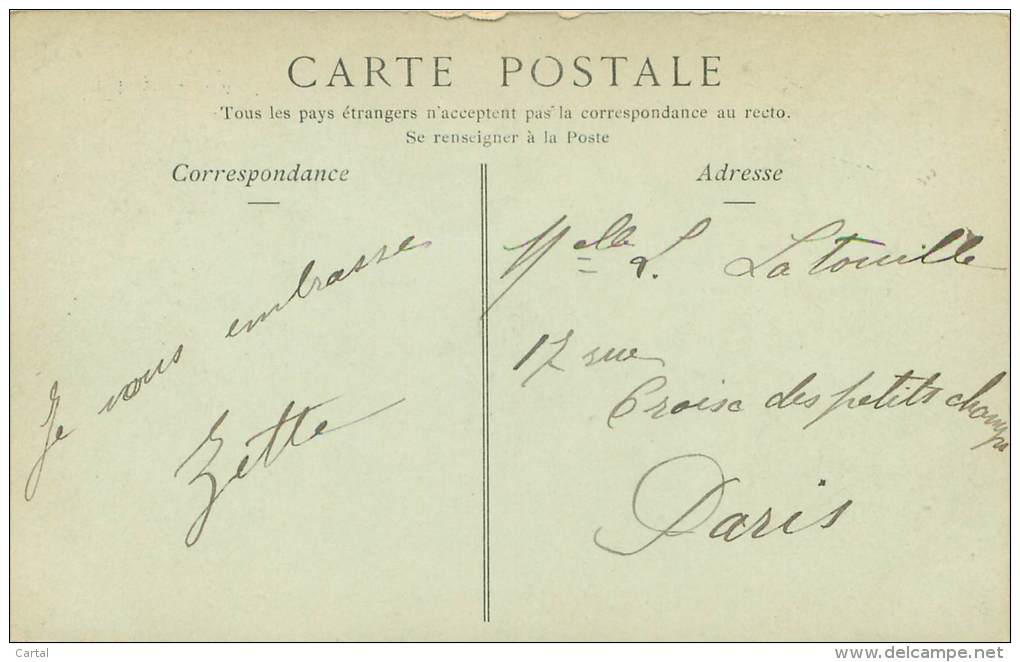 CARTE POSTALE
Tous les pays étrangers n'acceptent pas la correspondance au recto.
Se renseigner à la Poste
Correspondance
Je vous embrasse
Zette
Adresse
Melle L. Latouille
17 rue
Croise des petits champs
Paris
Cartal
www.delcampe.net